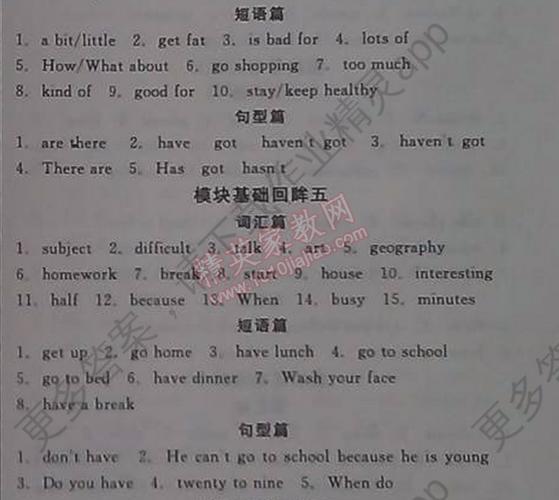 短语篇
1. a bit/little 2. get fat 3. is bad for 4. lots of
5. How/What about 6. go shopping 7. too much
8. kind of 9. good for 10. stay/keep healthy
句型篇
1. are there 2. have got haven't got 3. haven't got
4. There are 5. Has got hasn't
模块基础回眸五
词汇篇
1. subject 2. difficult 3. talk 4. art 5. geography
6. homework 7. break 8. start 9. house 10. interesting
11. half 12. because 13. When 14. busy 15. minutes
短语篇
1. get up 2. go home 3. have lunch 4. go to school
5. go to bed 6. have dinner 7. Wash your face
8. have a break
句型篇
1. don't have 2. He can't go to school because he is young
3. Do you have 4. twenty to nine 5. When do
更多答案，请下载作业精灵app
精英家教网